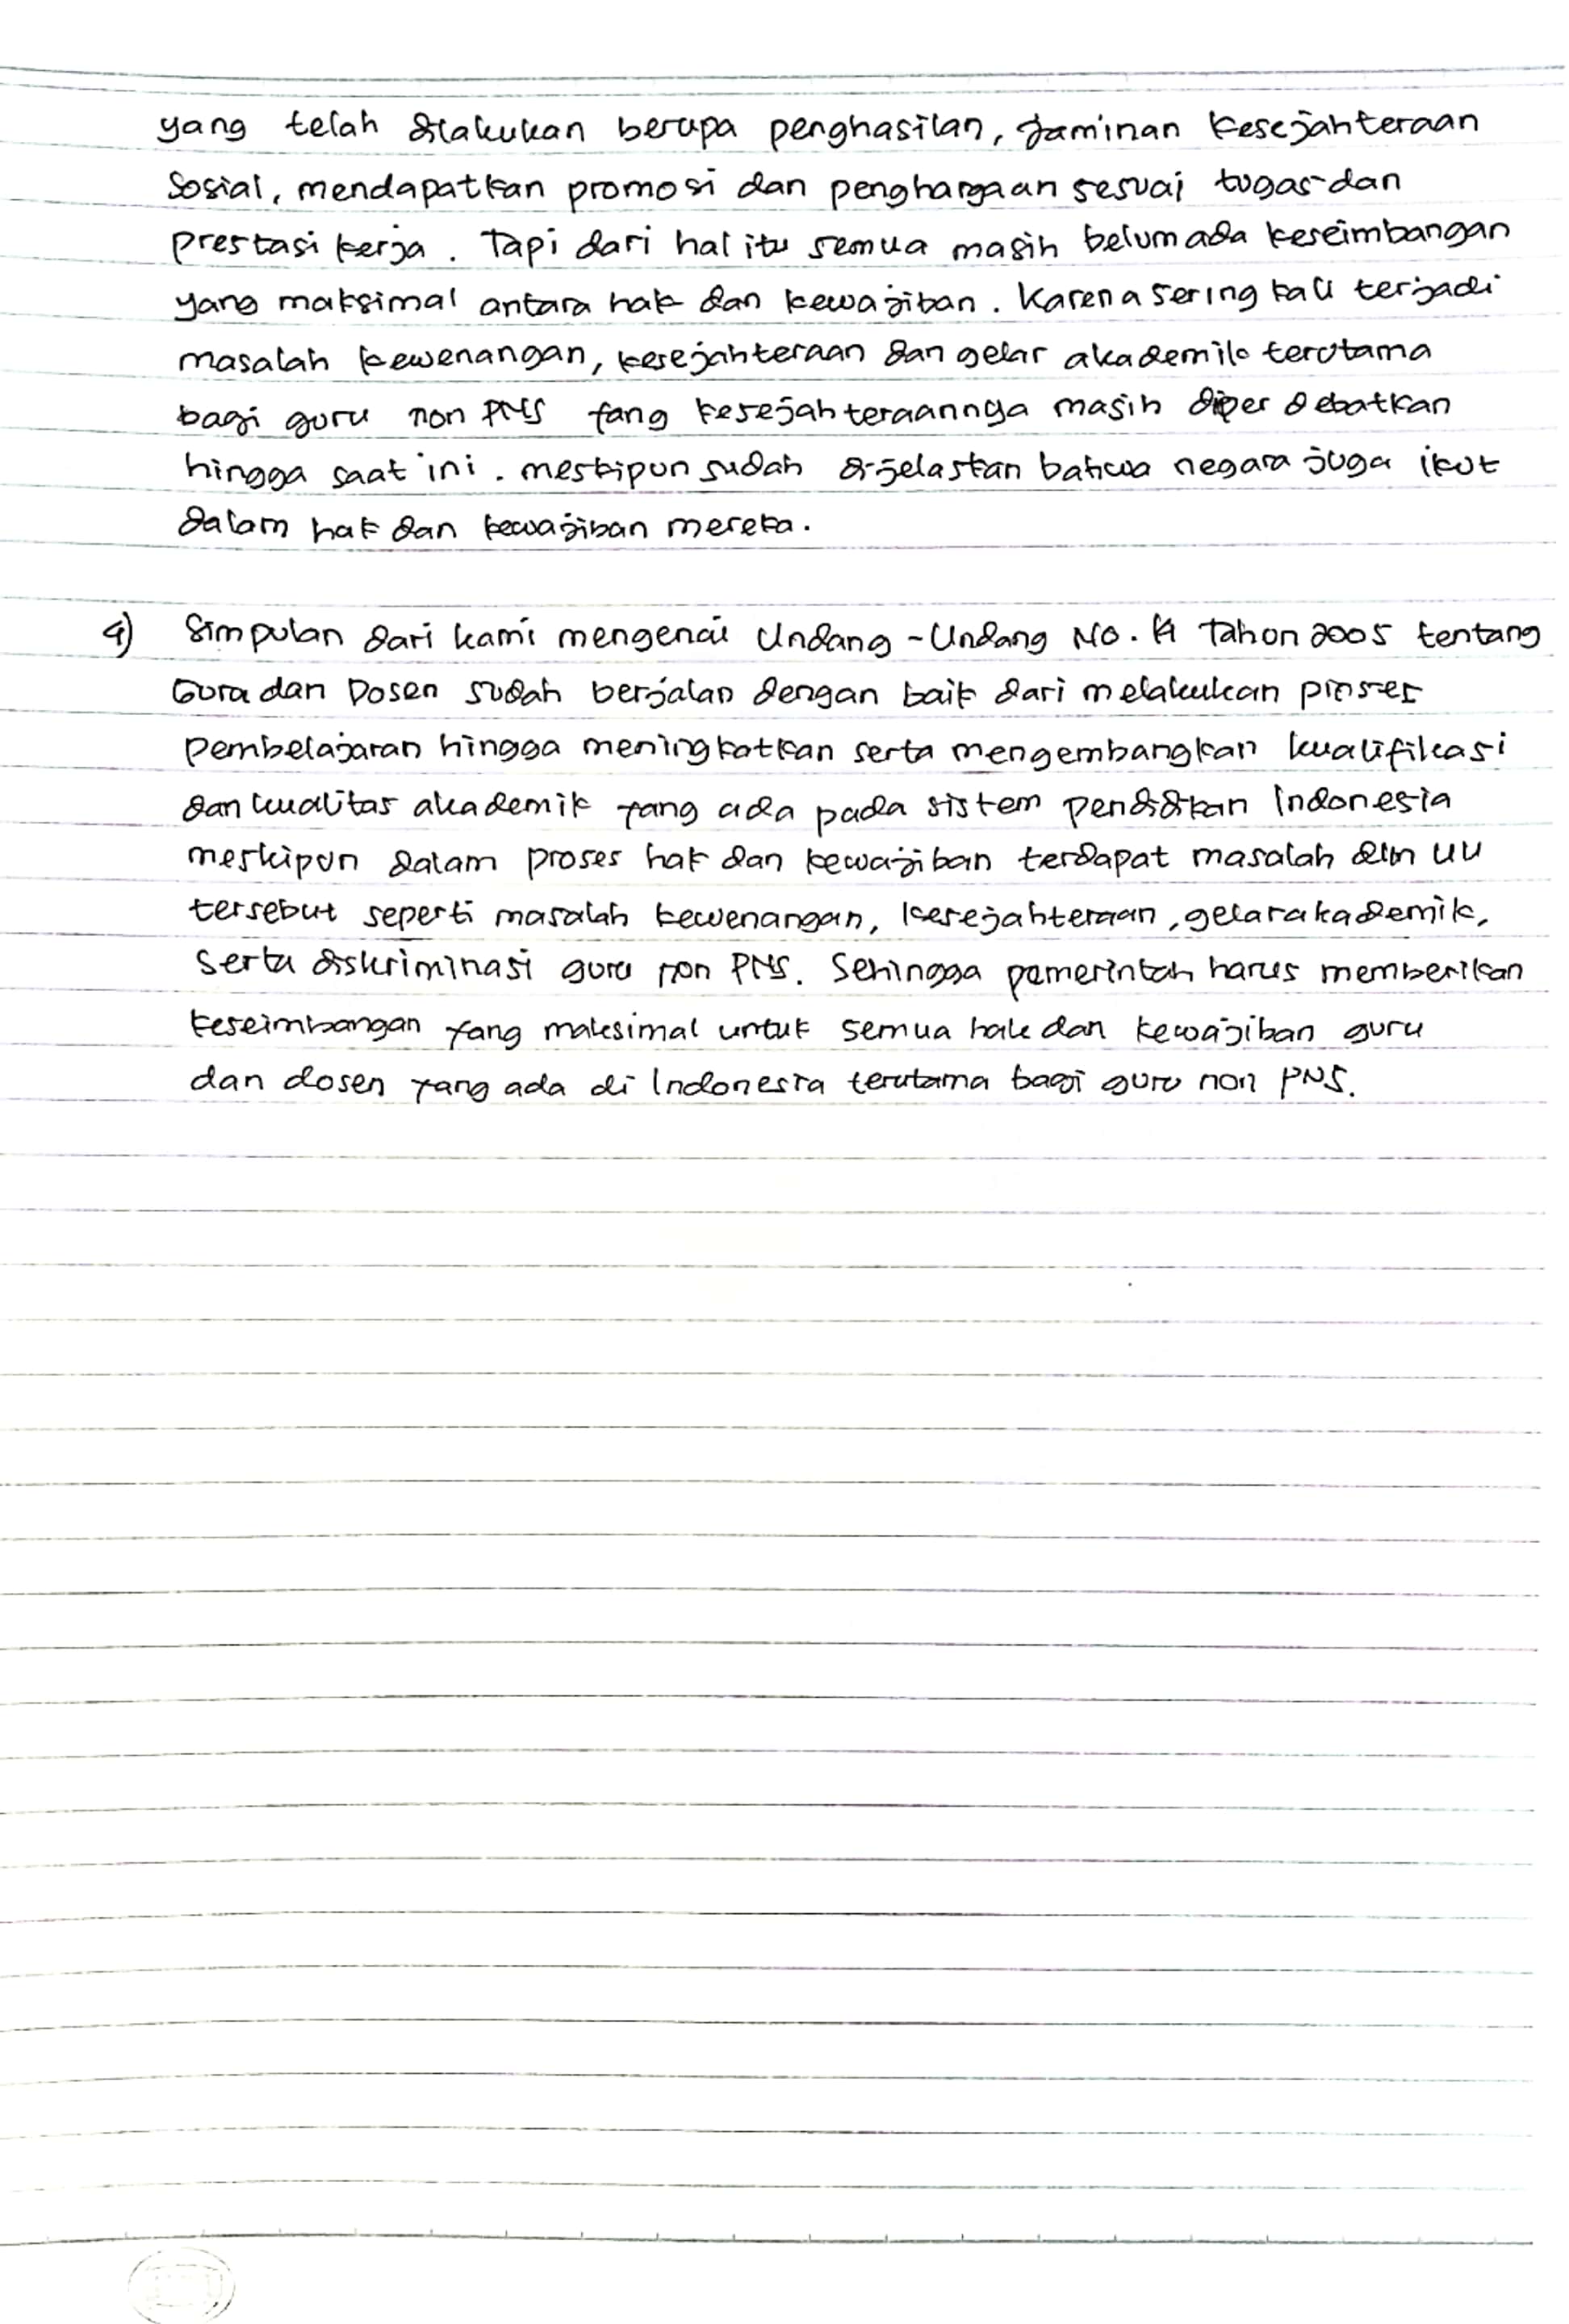 yang telah dilakukan berupa penghasilan, jaminan kesejahteraan
Sosial, mendapatkan promosi dan penghargaan sesuai tugas dan
prestasi kerja. Tapi dari hal itu semua masih belum ada keseimbangan
yang maksimal antara hak dan kewajiban. Karena sering kali terjadi
masalah kewenangan, kesejahteraan dan gelar akademik terutama
bagi guru non PNS yang kesejahteraannya masih diperdebatkan
hingga saat ini. meskipun sudah dijelaskan bahwa negara juga ikut
dalam hak dan kewajiban mereka.
4) Simpulan dari kami mengenai Undang-Undang No. 14 Tahun 2005 tentang
Guru dan Dosen sudah berjalan dengan baik dari melakukan proses
pembelajaran hingga meningkatkan serta mengembangkan kualifikasi
dan kualitas akademik yang ada pada sistem pendidikan Indonesia
meskipun dalam proses hak dan kewajiban terdapat masalah dlm UU
tersebut seperti masalah kewenangan, kesejahteraan, gelar akademik,
serta diskriminasi guru non PNS. Sehingga pemerintah harus memberikan
keseimbangan yang maksimal untuk semua hak dan kewajiban guru
dan dosen yang ada di Indonesia terutama bagi guru non PNS.